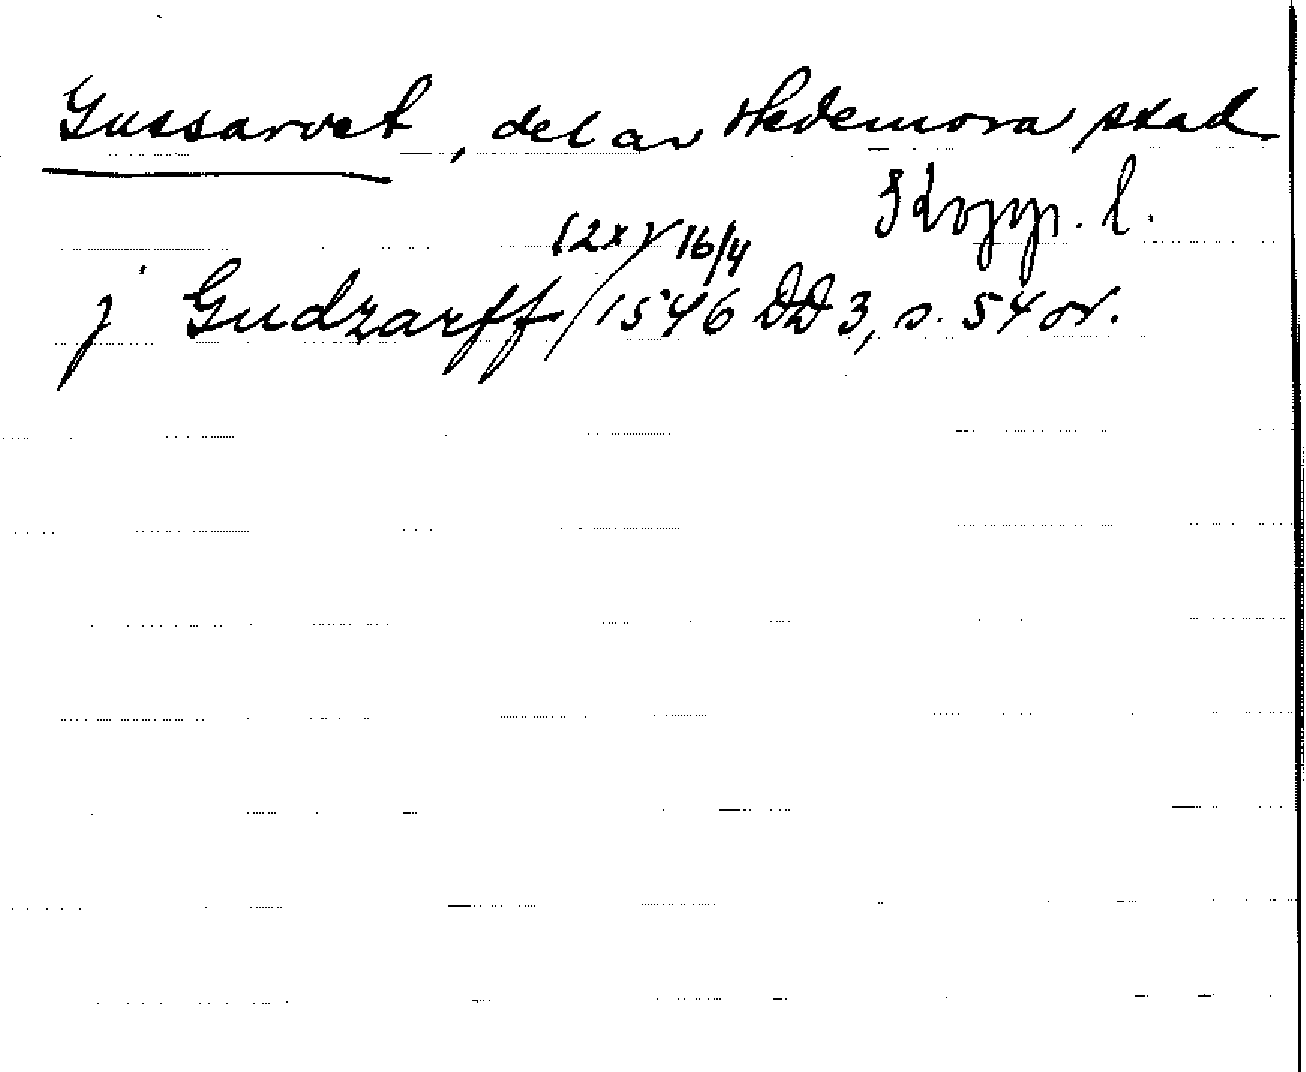 Gussarvet, del av Hedemora stad
Kopp. l.
(2x) 16/4
j Gudzarff / 1546 DD 3, s. 54 or.